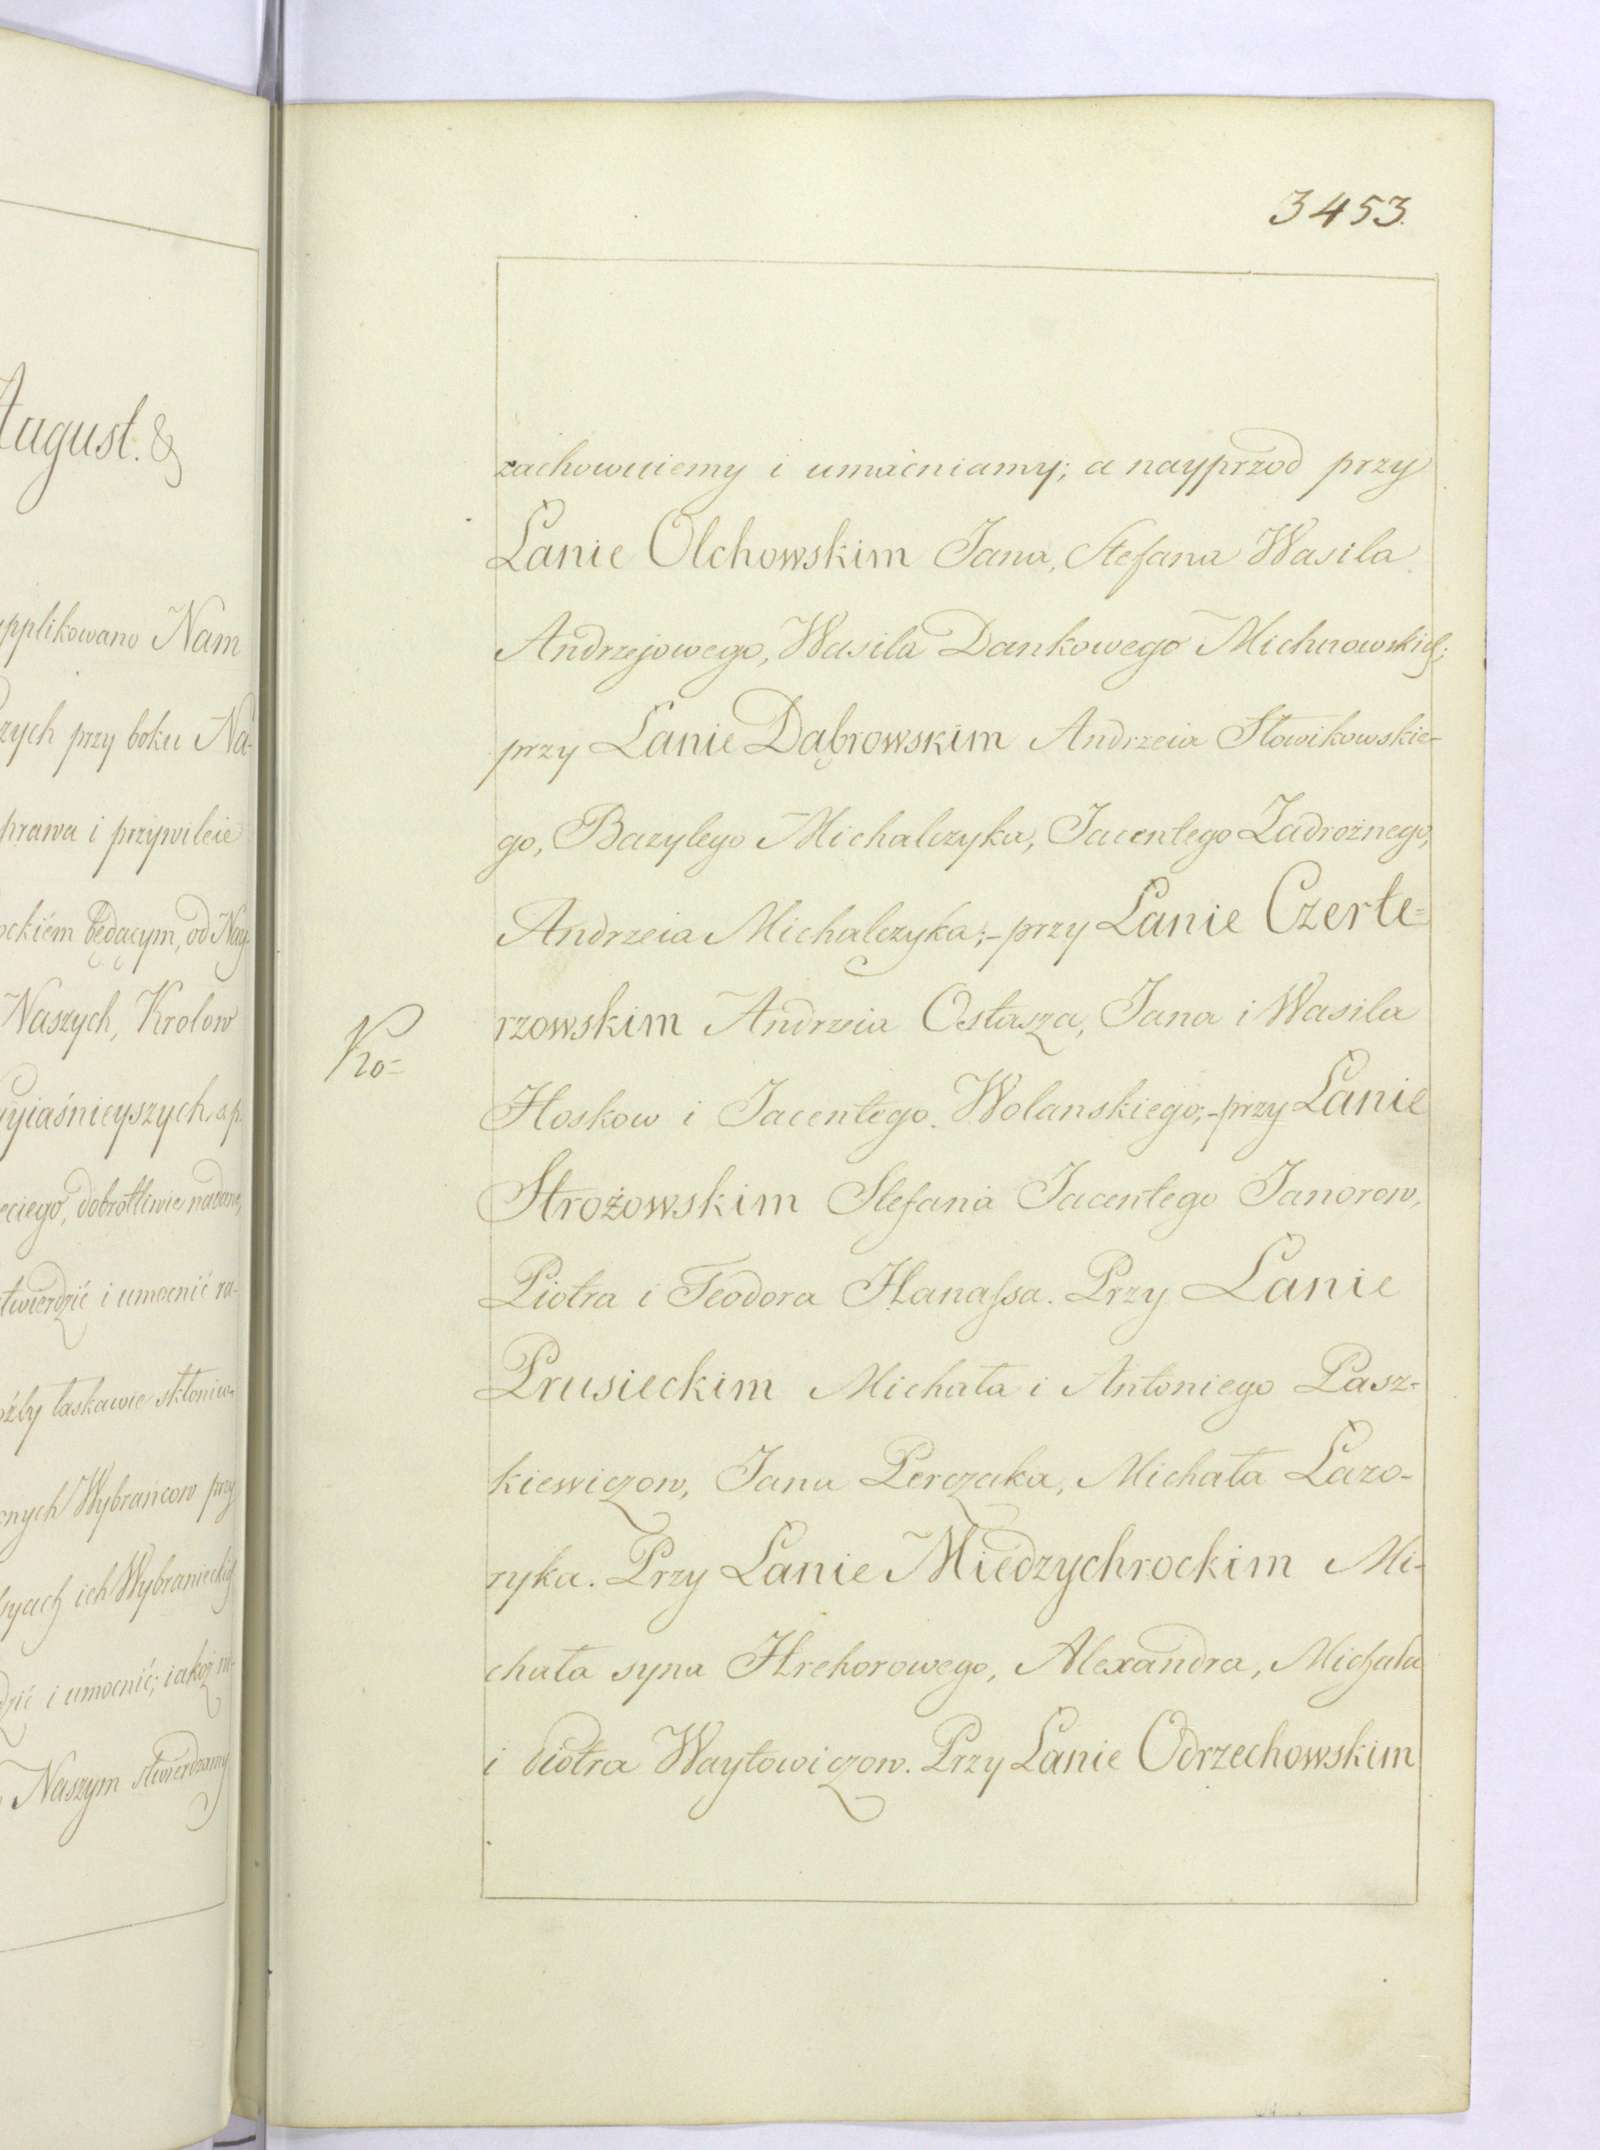 August. &
applikowano Nam
zych przy boku Na-
prawa i przywileie
ockiém będącym, od Nay-
Naszych, Krolow
yiaśnieyszych, s. p.
eciego, dobrotliwie nadane,
twierdzić i umocnić ra-
oźby łaskawie skłoniw-
cnych Wybrańcow przy
ich Wybranieckich
dzić i umocnić; iakoż ni-
Naszym stwierdzamy
3453.
zachowuiemy i umacniamy; a nayprzod przy
Lanie Olchowskim Jana, Stefana Wasila
Andrzejowego, Wasila Dankowego Michnowskich;
przy Lanie Dąbrowskim Andrzeia Słowikowskie-
go, Bazylego Michalczyka, Jacentego Zadroznego,
Andrzeia Michalczyka;- przy Lanie Czerte=
rzowskim Andrzeia Ostasza, Jana i Wasila
Hoskow i Jacentego Wolanskiego;- przy Lanie
Strożowskim Stefana Jacentego Janorow,
Piotra i Teodora Hanassa. Przy Lanie
Prusieckim Michała i Antoniego Pasz-
kiewiczow, Jana Perczaka, Michała Lazo-
ryka. Przy Lanie Miedzychrockim Mi-
chała syna Hrehorowego, Alexandra, Michała
i Piotra Waytowiczow. Przy Lanie Odrzechowskim
Ko=